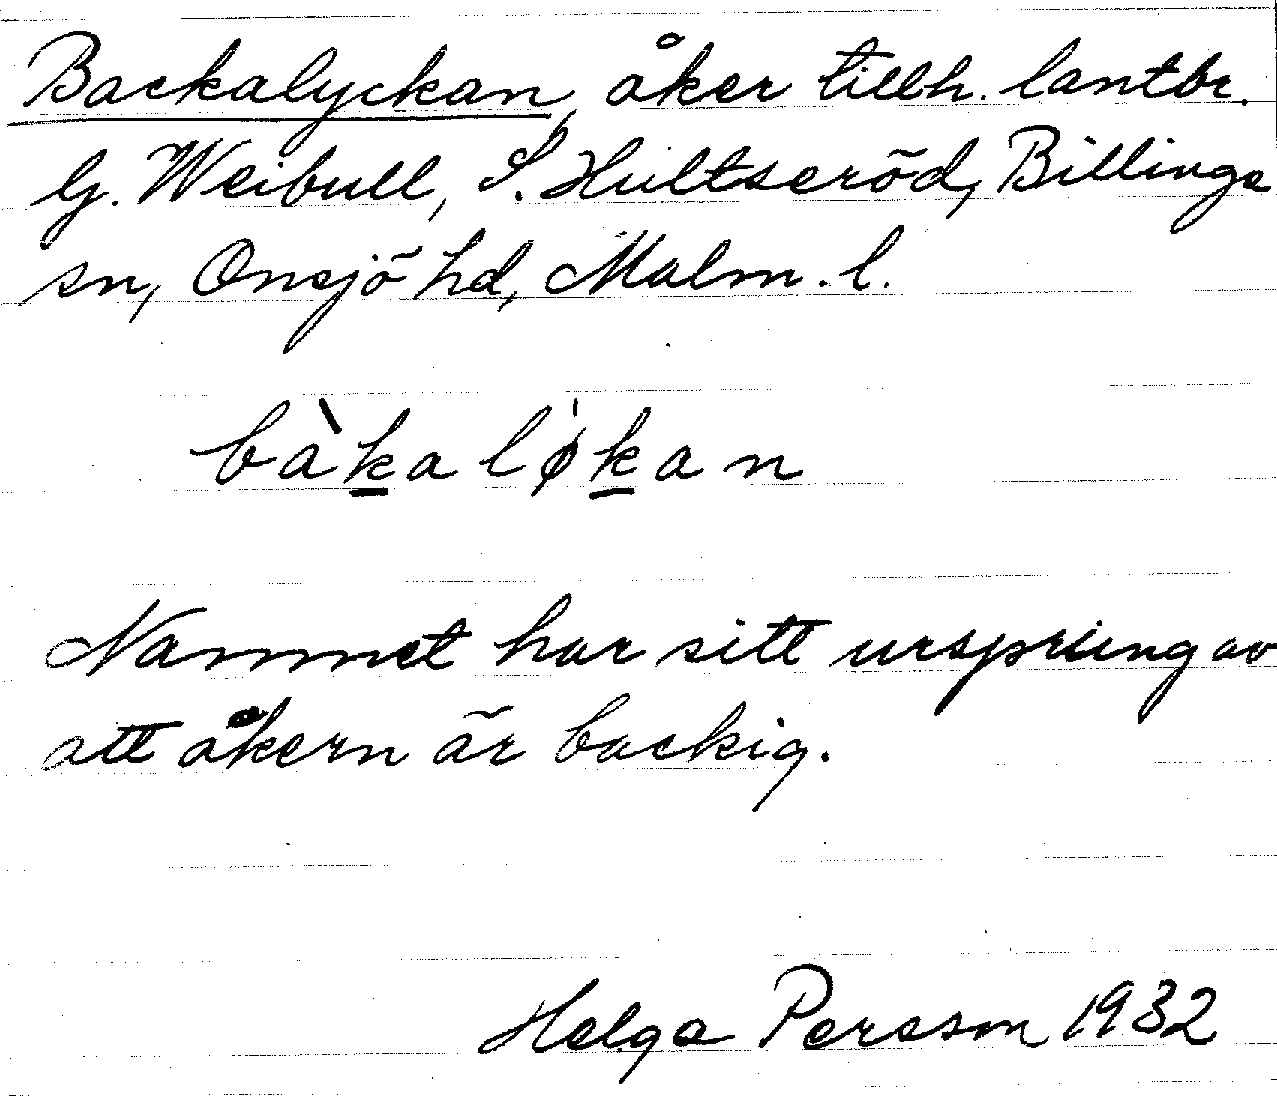 Backalyckan, åker tillh. lantbr.
G. Weibull, S. Hultseröd, Billinge
sn, Onsjö hd, Malm. l.
bàk̲alǿk̲an
Namnet har sitt ursprung av
att åkern är backig.
Helga Persson 1932